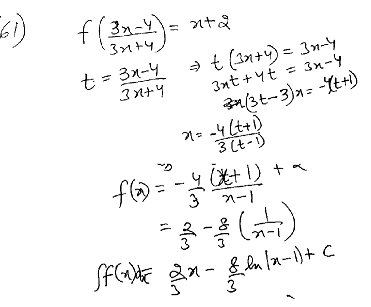 61) f(3x-4/3x+4) = x+2
t = 3x-4/3x+4 ⇒ t(3x+4) = 3x-4
3xt+4t = 3x-4
x(3t-3) = -4(t+1)
x = -4(t+1)/3(t-1)
f(x) = -4/3 (x+1)/x-1 + 2
= 2/3 - 8/3 (1/x-1)
∫f(x)dx = 2/3 x - 8/3 ln|x-1| + C